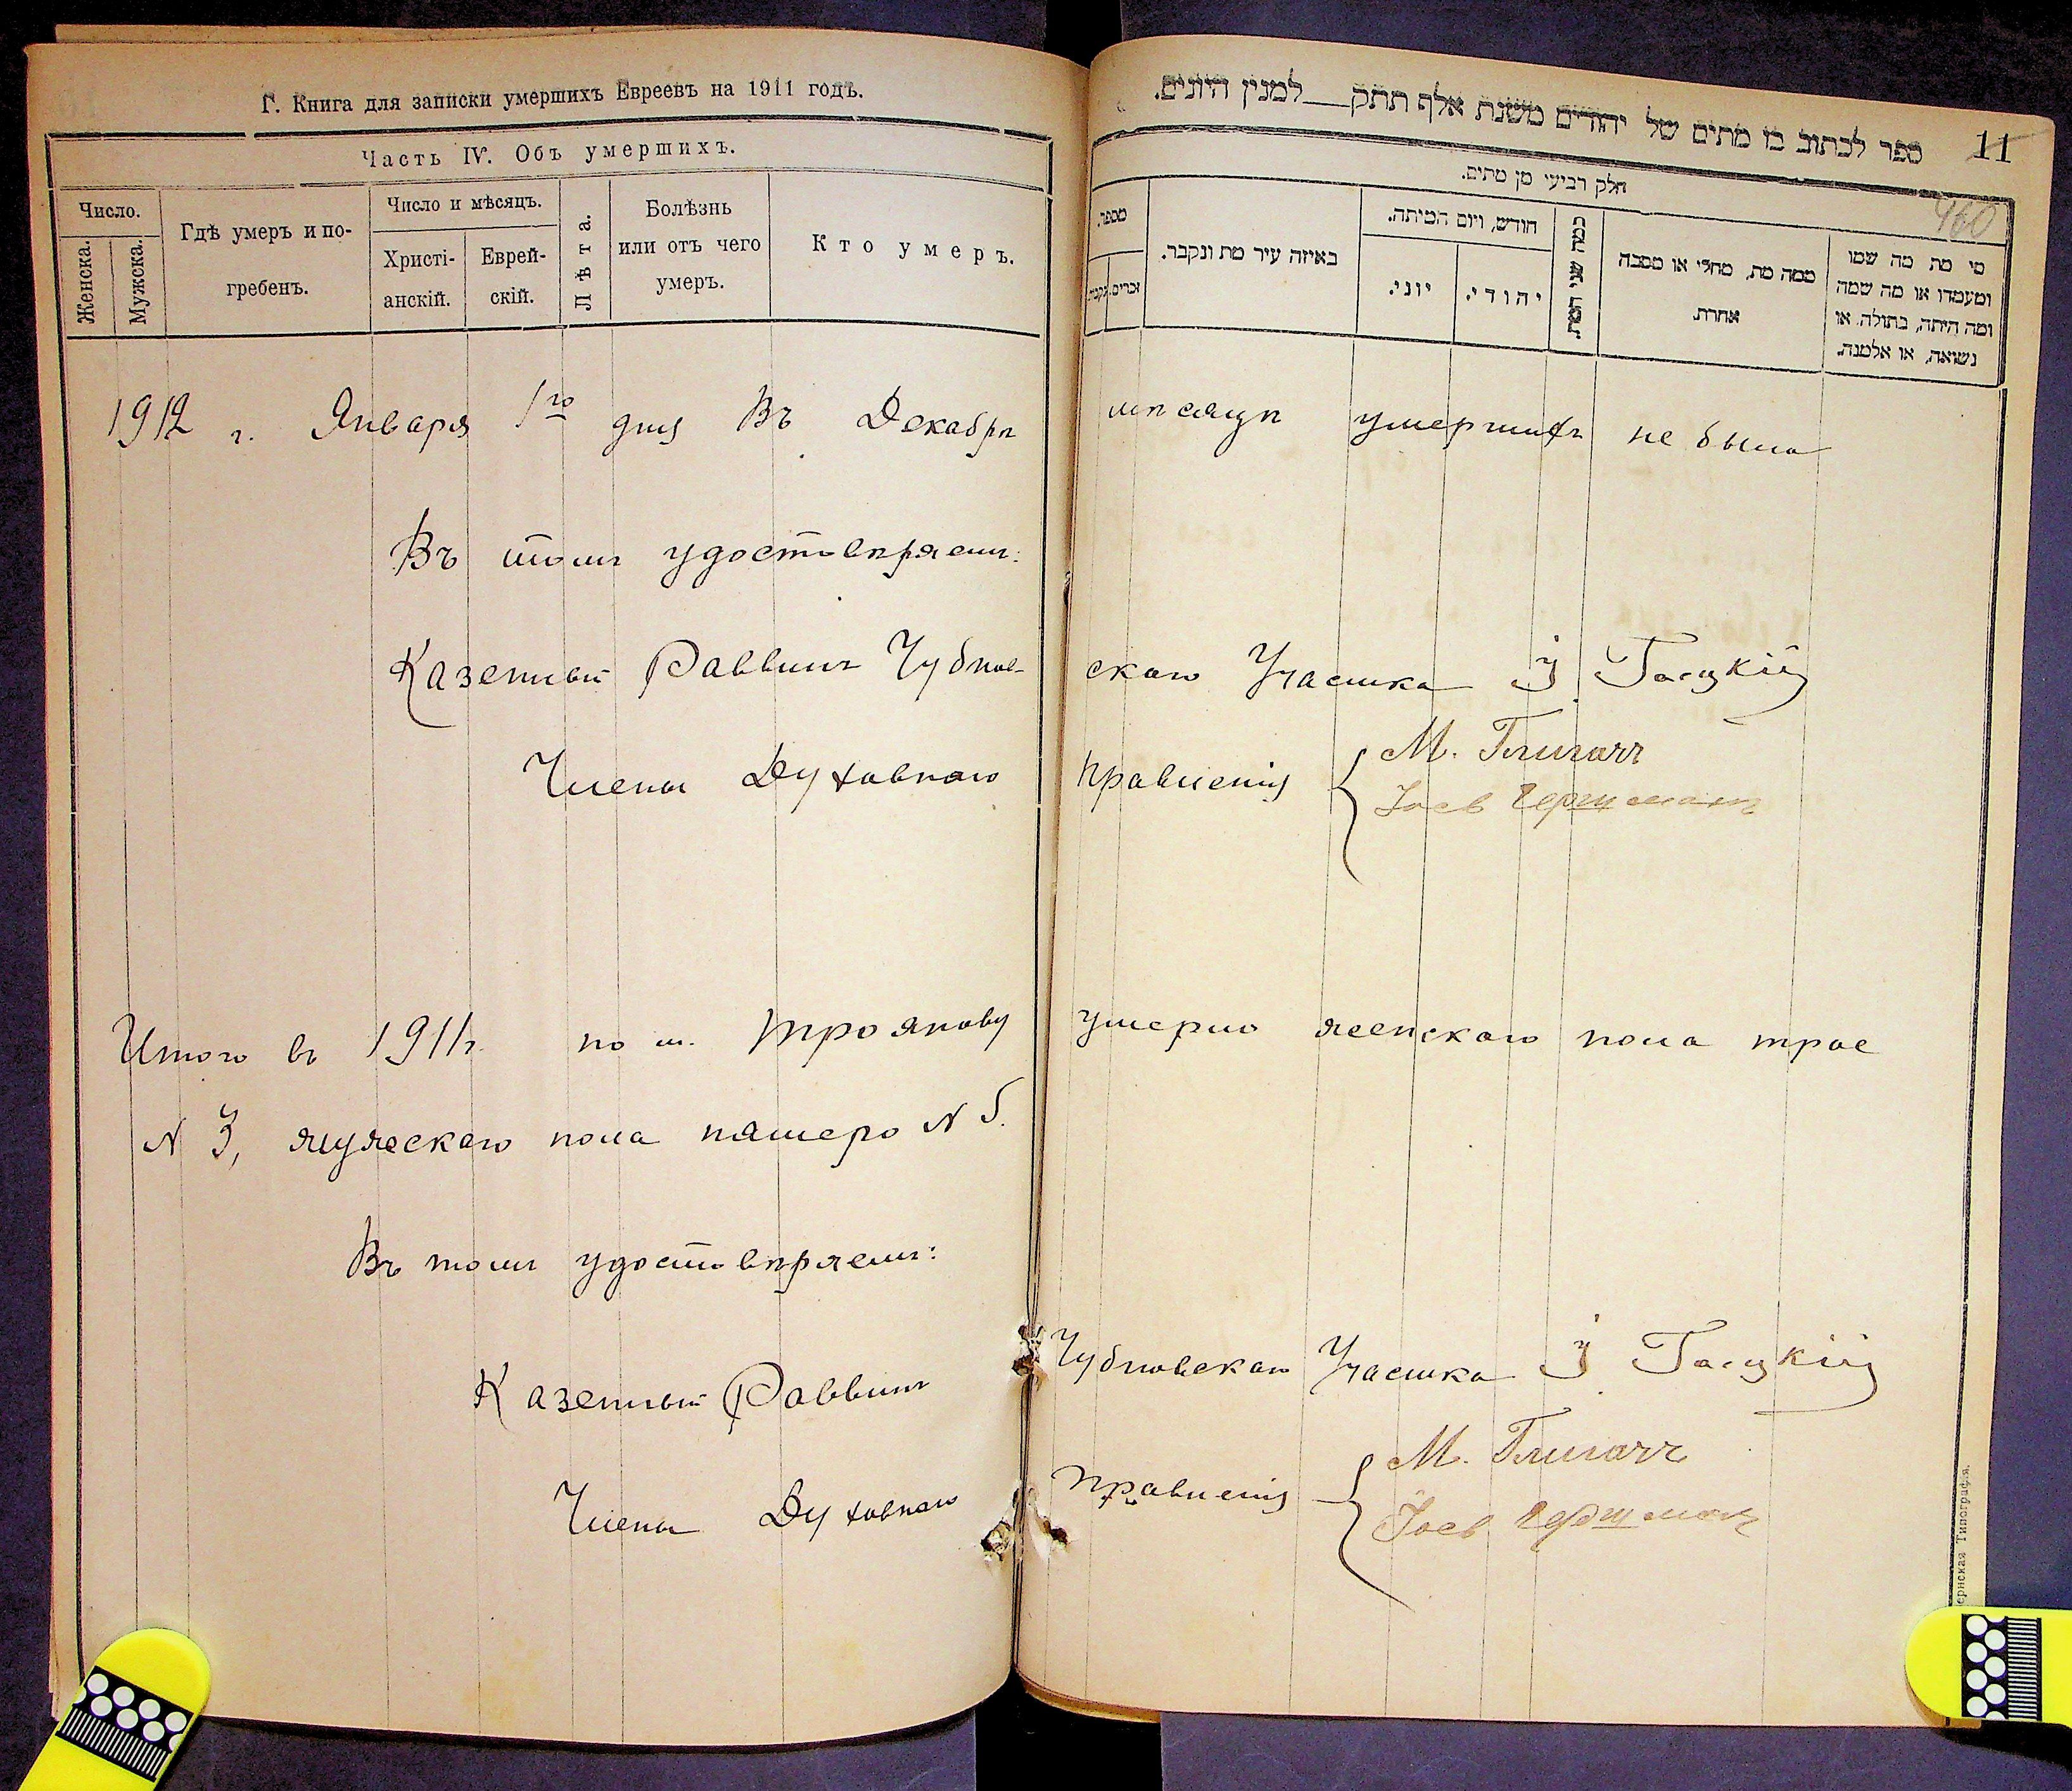 Г. Книга для записки умершихъ Евреевъ на 1911 годъ.
Часть IV. Объ умершихъ.
Число.
Женска.
Мужска.
Гдѣ умеръ и по-
гребенъ.
Число и мѣсяцъ.
Христі-
анскій.
Еврей-
скій.
Лѣта.
Болѣзнь
или отъ чего
умеръ.
Кто умеръ.
ספר לכתוב בו מתים של יהודים משנת אלף תתק למנין היונים.
11
460
חלק רביעי מן מתים.
מספר.
זכרים.
נקבות.
באיזה עיר מת ונקבר.
חודש, ויום המיתה.
יוני.
יהודי.
כמה שני המת.
ממה מת, מחלי או מסבה
אחרת.
מי מת מה שמו
ומעמדו או מה שמה
ומה היתה, בתולה או
נשואה, או אלמנה.
1912 г. Января 1го дня Въ Декабрѣ мѣсяцѣ умершихъ не было
Въ томъ удостовѣряемъ:
Казенный Раввинъ Чубков-
скаго Участка І
Члены Духовнаго Правленія
М.
Іось Гершманъ
Итого въ 1911г. по м. Троянову умерло женскаго пола трое
N 3, мужескаго пола пятеро N 5.
Въ томъ удостовѣряемъ:
Казенный Раввинъ Участка І
Члены Духовнаго Правленія
М.
Іось Гершманъ
ернская Типографія.